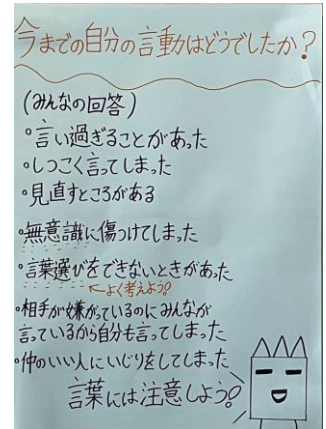 今までの自分の言動はどうでしたか?
(みんなの回答)
°言い過ぎることがあった
°しつこく言ってしまった
°見直すところがある
°無意識に傷つけてしまった
°言葉選びをできないときがあった
←よく考えよう!
°相手が嫌がっているのにみんなが
言っているから自分も言ってしまった
°仲のいい人にいじりをしてしまった
言葉には注意しよう!